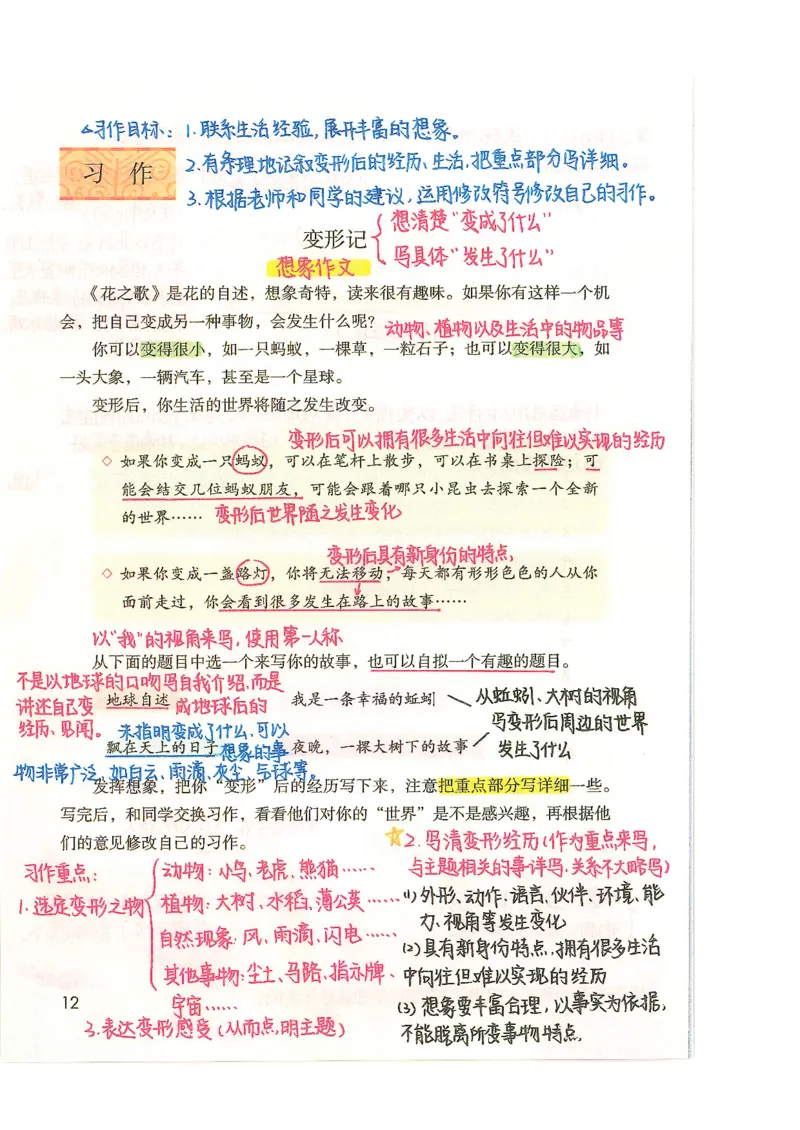 习作目标：1.联系生活经验，展开丰富的想象。
2.有条理地记叙变形后的经历、生活，把重点部分写详细。
3.根据老师和同学的建议，运用修改符号修改自己的习作。
习 作
变形记
想清楚“变成了什么”
写具体“发生了什么”
想象作文
《花之歌》是花的自述，想象奇特，读来很有趣味。如果你有这样一个机
会，把自己变成另一种事物，会发生什么呢？
动物、植物以及生活中的物品等
你可以变得很小，如一只蚂蚁，一棵草，一粒石子；也可以变得很大，如
一头大象，一辆汽车，甚至是一个星球。
变形后，你生活的世界将随之发生改变。
变形后可以拥有很多生活中向往但难以实现的经历
◇ 如果你变成一只蚂蚁，可以在笔杆上散步，可以在书桌上探险；可
能会结交几位蚂蚁朋友，可能会跟着哪只小昆虫去探索一个全新
的世界……
变形后世界随之发生变化
变形后具有新身份的特点，
◇ 如果你变成一盏路灯，你将无法移动，每天都有形形色色的人从你
面前走过，你会看到很多发生在路上的故事……
以“我”的视角来写，使用第一人称
从下面的题目中选一个来写你的故事，也可以自拟一个有趣的题目。
不是以地球的口吻写自我介绍，而是
讲述自己变
地球自述
成地球后的
经历、见闻。
我是一条幸福的蚯蚓
从蚯蚓、大树的视角
写变形后周边的世界
发生了什么
未指明变成了什么，可以
飘在天上的日子
想象的事
夜晚，一棵大树下的故事
物非常广泛，如白云、雨滴、灰尘、气球等。
发挥想象，把你“变形”后的经历写下来，注意把重点部分写详细一些。
写完后，和同学交换习作，看看他们对你的“世界”是不是感兴趣，再根据他
们的意见修改自己的习作。
习作重点：
1.选定变形之物
动物：小鸟、老虎、熊猫……
植物：大树、水稻、蒲公英……
自然现象：风、雨滴、闪电……
其他事物：尘土、马路、指示牌、
宇宙……
3.表达变形感受（从而点明主题）
2.写清变形经历（作为重点来写，
与主题相关的事详写，关系不大略写）
(1)外形、动作、语言、伙伴、环境、能
力、视角等发生变化
(2)具有新身份特点，拥有很多生活
中向往但难以实现的经历
(3)想象要丰富合理，以事实为依据，
不能脱离所变事物特点。
12